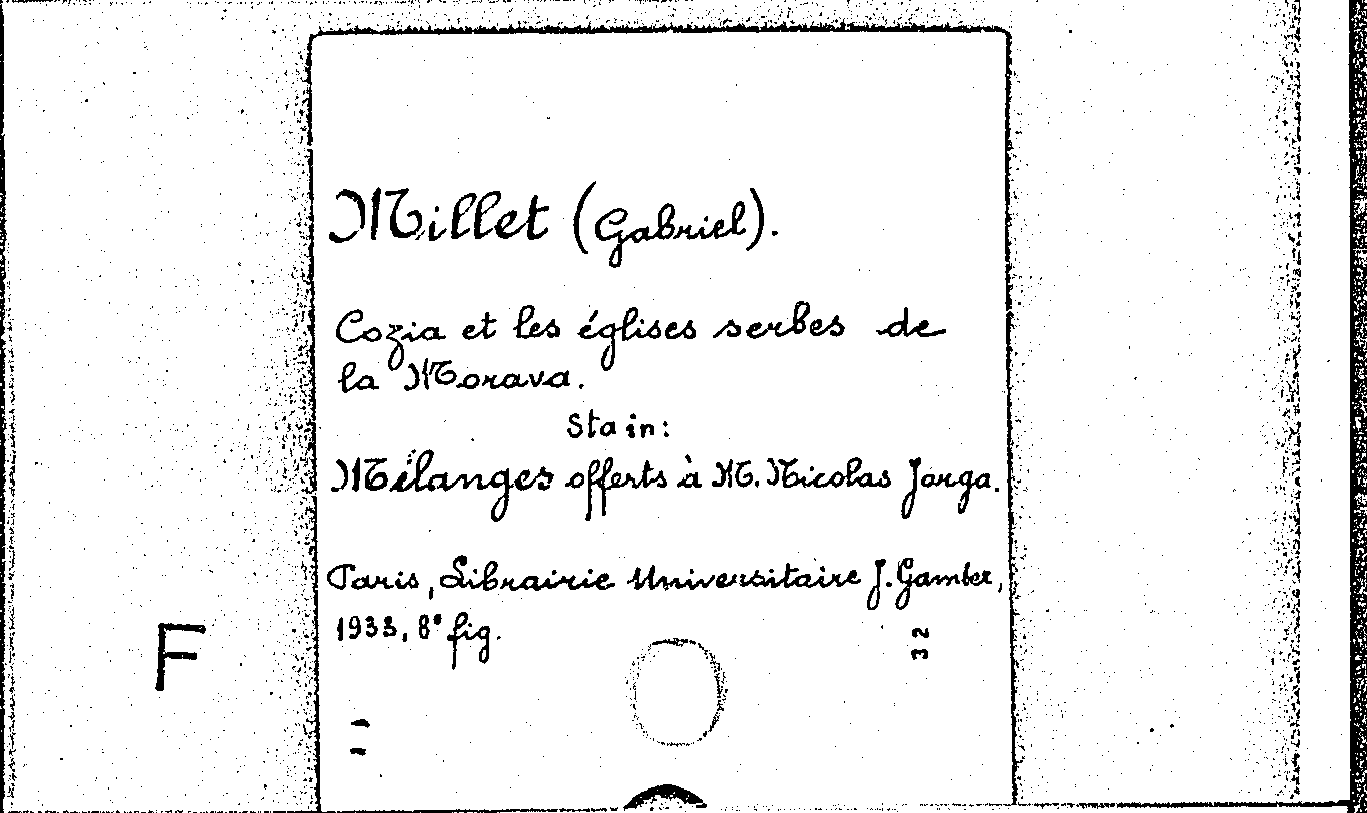 Millet (Gabriel).
Cozia et les églises serbes de
la Morava.
Sta in:
Mélanges offerts à M. Nicolas Jorga.
Paris, Librairie Universitaire J. Gamber,
1933, 8° fig.
32
F